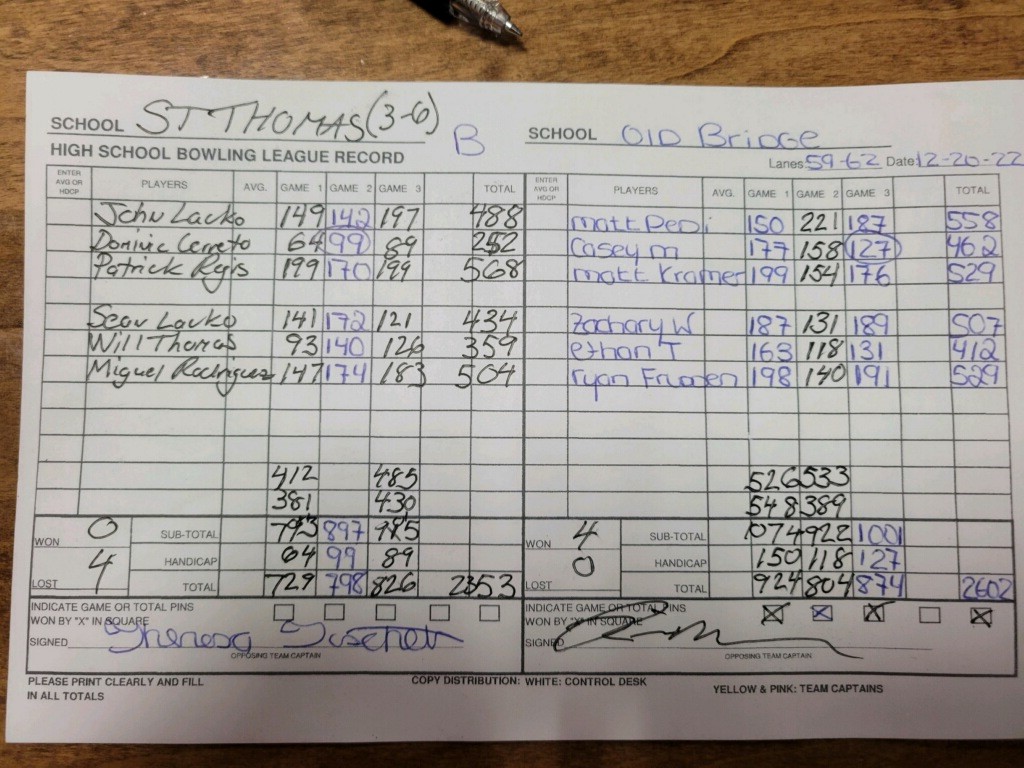 SCHOOL ST THOMAS (3-6) B SCHOOL OLD Bridge
HIGH SCHOOL BOWLING LEAGUE RECORD Lanes 59-62 Date 12-20-22
ENTER AVG. OR HDCP PLAYERS AVG. GAME 1 GAME 2 GAME 3 TOTAL ENTER AVG. OR HDCP PLAYERS AVG. GAME 1 GAME 2 GAME 3 TOTAL
John Lacko 149 142 197 488 Matt 150 221 187 558
Dominic Cerreto 64 99 89 252 Casey M 177 158 127 462
Patrick Regis 199 170 199 568 Matt Kramer 199 154 176 529
Sean Lacko 141 172 121 434 Zachary W 187 131 189 507
Will Thomas 93 140 126 359 ethan T 163 118 131 412
Miguel Rodriguez 147 174 183 504 ryan 198 140 191 529
412 485 526 533
381 430 548 389
WON 0 SUB-TOTAL 793 897 915 WON 4 SUB-TOTAL 1074 922 1001
HANDICAP 64 99 89 HANDICAP 150 118 127
LOST 4 TOTAL 729 798 826 2353 LOST 0 TOTAL 924 804 874 2602
INDICATE GAME OR TOTAL PINS INDICATE GAME OR TOTAL PINS
WON BY "X" IN SQUARE WON BY "X" IN SQUARE X X X X
SIGNED Theresa SIGNED
OPPOSING TEAM CAPTAIN OPPOSING TEAM CAPTAIN
PLEASE PRINT CLEARLY AND FILL COPY DISTRIBUTION: WHITE: CONTROL DESK YELLOW & PINK: TEAM CAPTAINS
IN ALL TOTALS